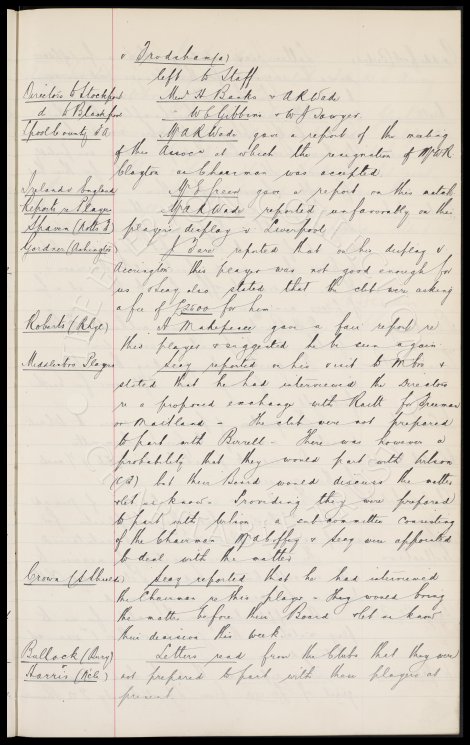 v Trodsham(a)
left to Staff
Directors to Stockport Messrs H Banks & A R Wade
d to Blackpool W C Gibbins & W J Sawyer.
Lpool County F A Mr A R Wade gave a report of the meeting
of this Assocn at which the resignation of Mr W R
Clayton as Chairman was accepted.
Ireland v England Mr E Green gave a report on this match
Reports re Players Mr A R Wade reported unfavorably on this
Spawn players display v Liverpool
Gardner (Ashington) J reported that on his display v
Accrington this player was not good enough for
us. Secy also stated that the club were asking
a fee of £2600 for him
Roberts A Makepeace gave a fair report re
this player & suggested he be seen again.
Middlesbro Players Secy reported on his visit to M'bro &
stated that he had interviewed the Directors
re a proposed exchange with Raitt for Freeman
or Maitland - The club were not prepared
to part with Birrell - There was however a
probability that they would part with Wilson
but their Board would discuss the matter
& let us know - Providing they were prepared
to part with Wilson, a sub committee consisting
of the Chairman Mr Coffey & Secy were appointed
to deal with the matter
Crown (S Shields) Secy reported that he had interviewed
the Chairman re this player - They would bring
the matter before their Board & let us know
their decision this week.
Bullock (Bury) Letters read from the Clubs that they were
Harris not prepared to part with these players at
present.